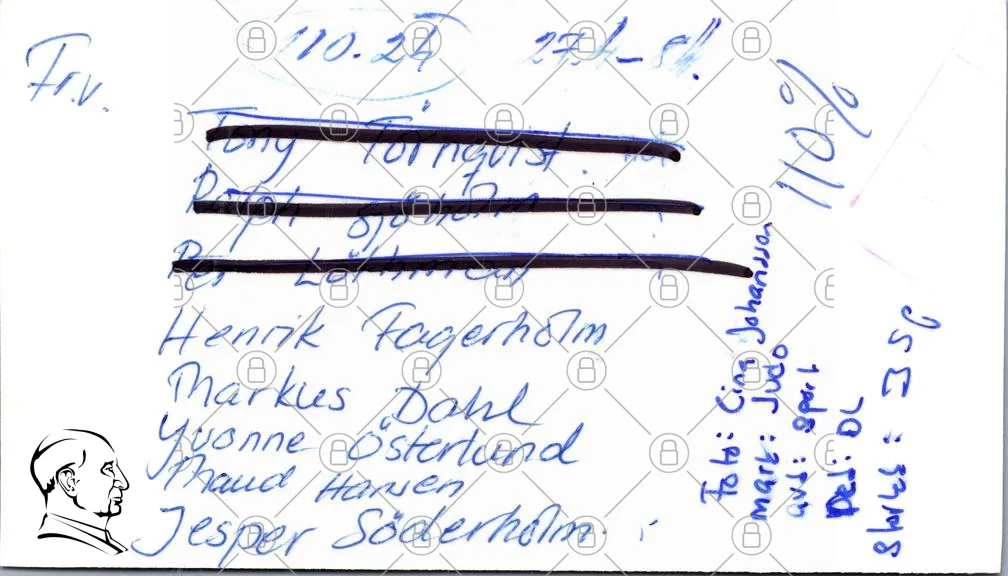 Fr.v.
110.24
110%
Tony Törnqvist
Ralph Sjöholm
Per
Henrik Fagerholm
Markus Dahl
Yvonne Österlund
Maud Hansen
Jesper Söderholm
Foto: Johansson
mark: Judo
avd: Sport
Del: DL
3 sp